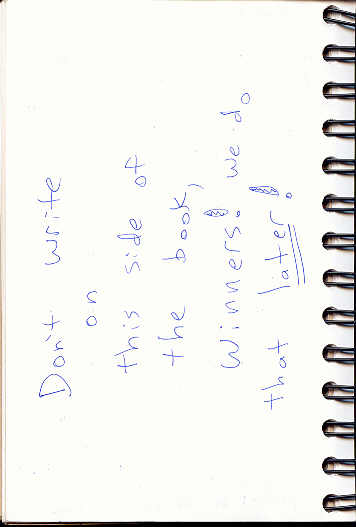 Don't write
on
this side of
the book,
winners! we do
that later!